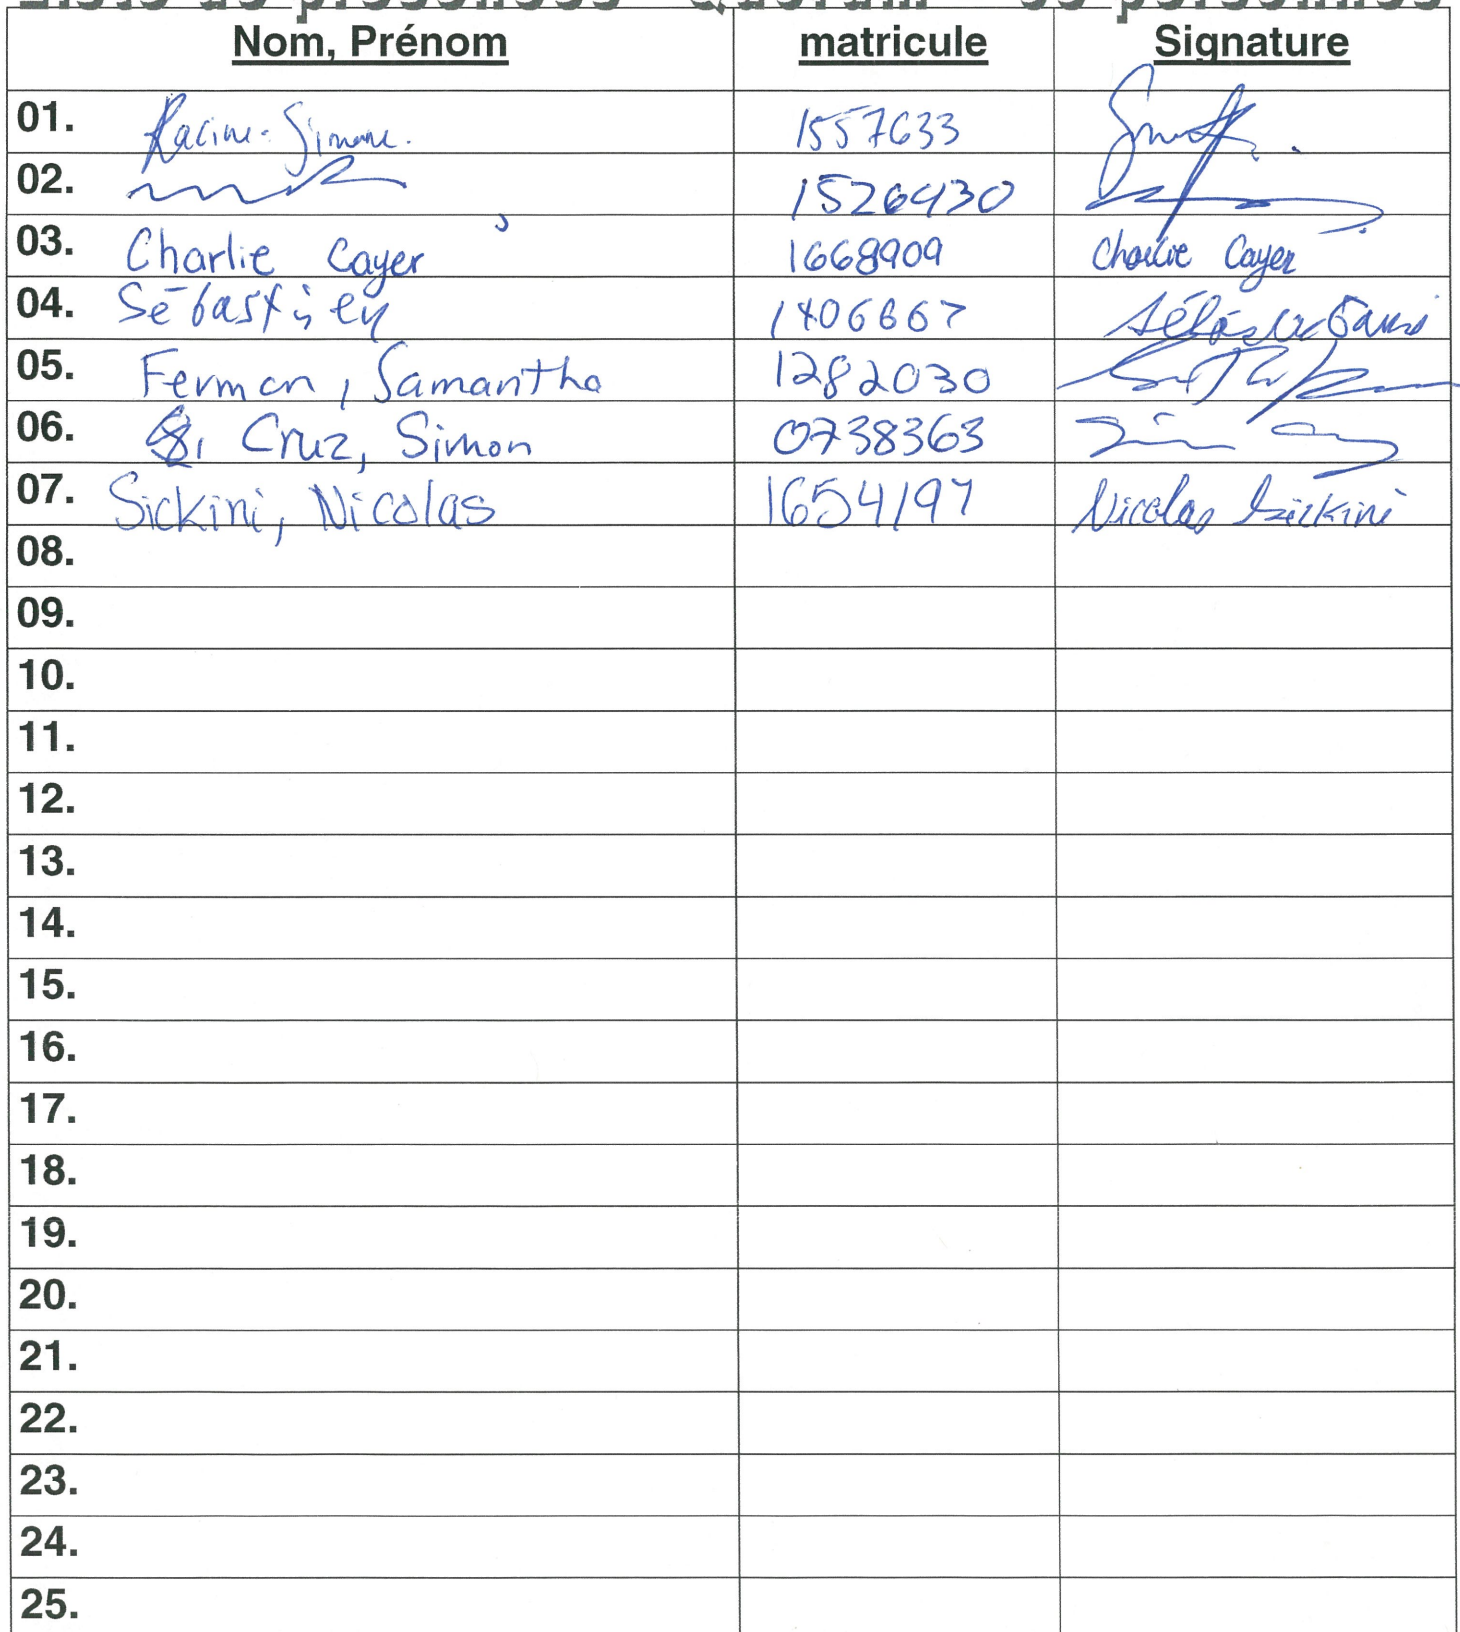 Nom, Prénom matricule Signature
01. Racine Simone. 1557633
02. 1526930
03. Charlie Cayer 1668909 Charlie Cayer
04. Sébastien 1406667
05. Ferman, Samantha 1282030
06. Cruz, Simon 0738363
07. Sickini, Nicolas 1654197 Nicolas Sickini
08.
09.
10.
11.
12.
13.
14.
15.
16.
17.
18.
19.
20.
21.
22.
23.
24.
25.